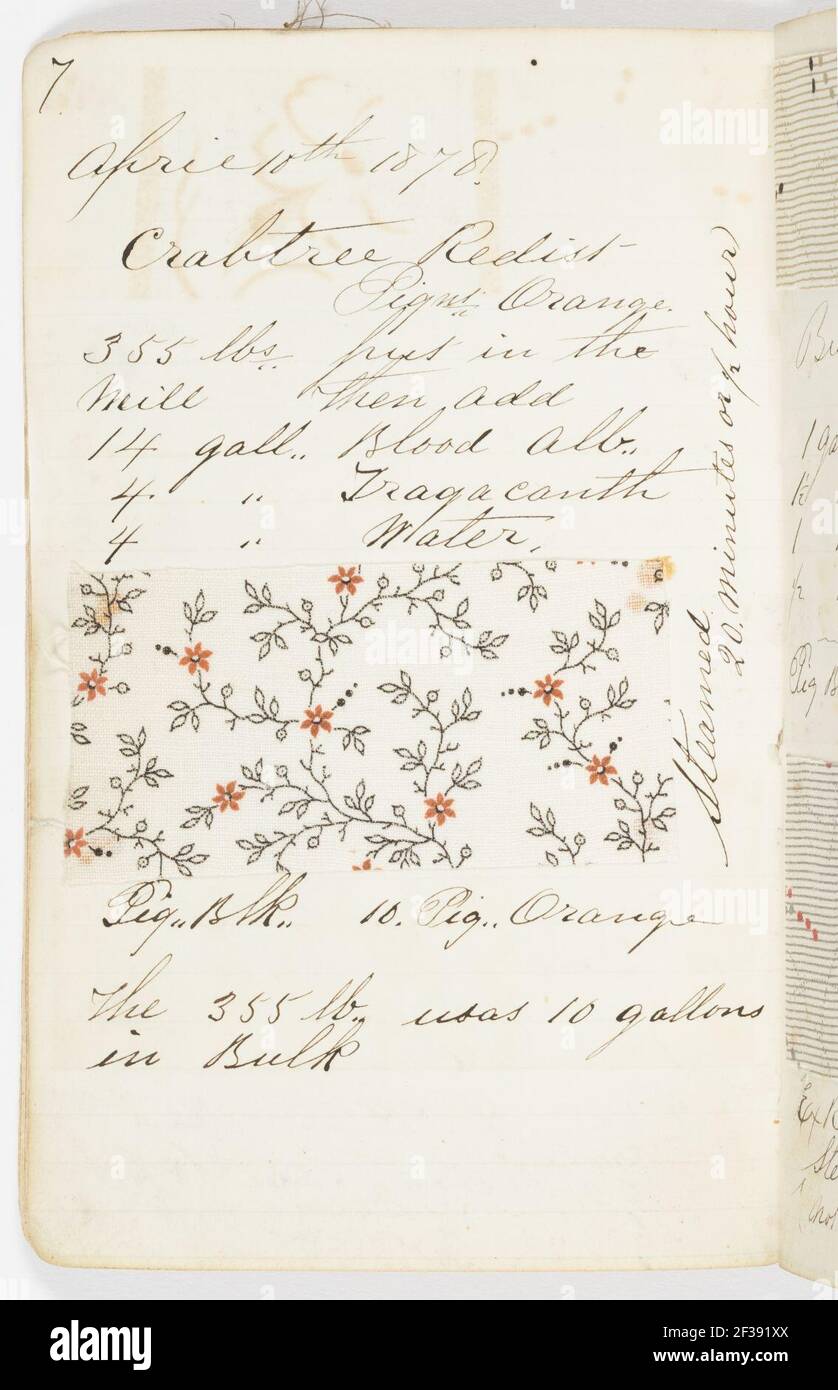 7
April 10th 1878.
Crabtree Redist
Pignt. Orange.
355 lbs. put in the
Mill then add
14 gall,, Blood alb,,
4 ,, Tragacanth
4 ,, Water.
Steamed
20 minutes or ½ hour
Pig,, Blk,, 10. Pig,, Orange
The 355 lb,, usas 10 gallons
in Bulk
1
½
1
½
Pig B
alamy
Image ID: 2F391XX
www.alamy.com